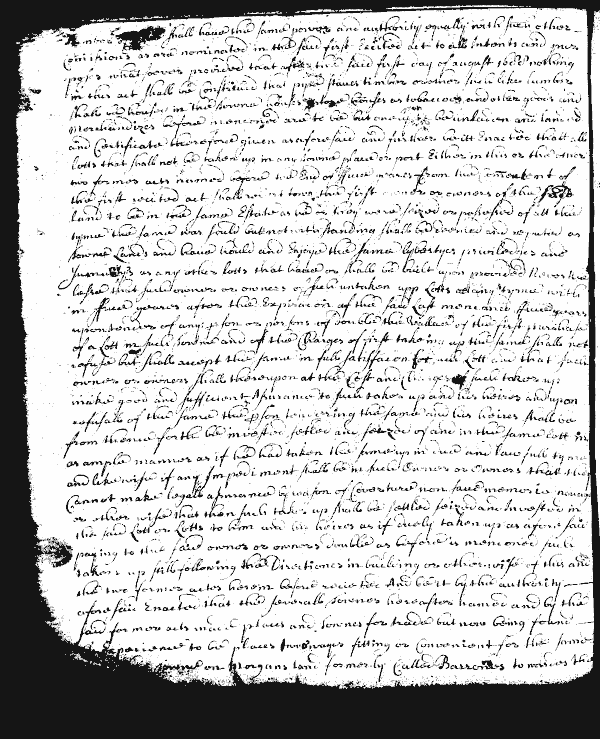 shall have the same power and authority equally with such other
Comissions as are nominated in the said first recited act to all Intents and pur
poses whatsoever provided that after the said first day of august 1688 nothing
in this act shall be Construed that pipe staves timber or other such like lumber
shall be housed in the towne houses as tobaccoes and other goods and
Merchandizes before menconed are to be but onely to be unladen and landed
and Certificate thereof given as aforesaid and further be itt Enacted that all
lotts that shall not be taken up in any towne place or port Either in this or the other
two former acts named before the End of ffive yeares from the
the first recited act shall revert to the first owner or owners of the said
land to be in the same Estate as he or they were seized or possessed of att the
tyme the same was sould but notwithstanding shall be deemed and reputed as
towne Lands and have hould and Enjoye the same lybertyes priviledges and
Jumunityes as any other lotts that have or shall be built upon provided Neverthe
lesse that such owner or owners of such untaken upp Lotts att any tyme with
in ffive yeares after the Expiracon of the said last menconed ffive yeares
upon tender of any pson or persons of double the Vallue of the first purchase
of a Lott in such towne and of the Charges of first takeing up the same shall not
refuse but shall accept the same in full satisfaccon for said Lott and that such
owner or owners shall thereupon at the Cost and Charges of such taker up
make good and sufficient Assurance to such taker up and his heires and upon
refusall of the same the pson tendering the same and his heires shall be
from thence forth be invested setled and seized of and in the same lott in
as ample manner as if he had taken the same up in due and lawfull tyme
and likewise if any Impediment shall be in such Owner or Owners that they
Cannot make legall assurance by reason of Coverture non sane memorie nonage
or other wise that then such taker up shall be setled seized and Invested in
the said Lott or Lotts to him and his heires as if duely taken up as afore said
paying to the said owner or owners double as before is menconed such
taker up still following the Directions in building or otherwise of this and
the two former actes herein before recited And be it by the authority
aforesaid Enacted that the severall townes hereafter named and by the
said former acts made places and townes for trade but now being found
Experience to be places noewayes fitting or Convenient for the same
towne on Morgans land formerly Called Barrowes towards the